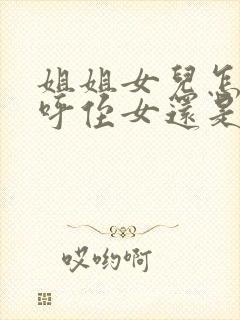 姐姐女兒怎
呼侄女還是
哎哟啊